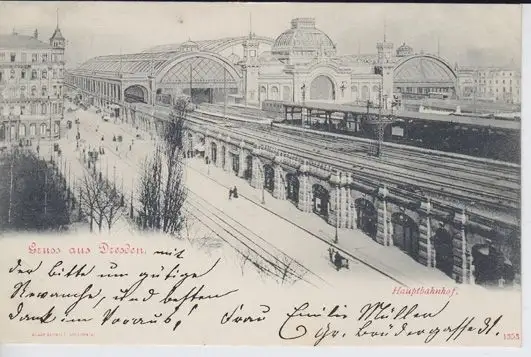 Gruss aus Dresden.
mit
der Bitte um gütige
Revanche, und besten
Dank im Voraus!
Hauptbahnhof.
Frau Emilie Müller
Gr. Brüdergasse
1353